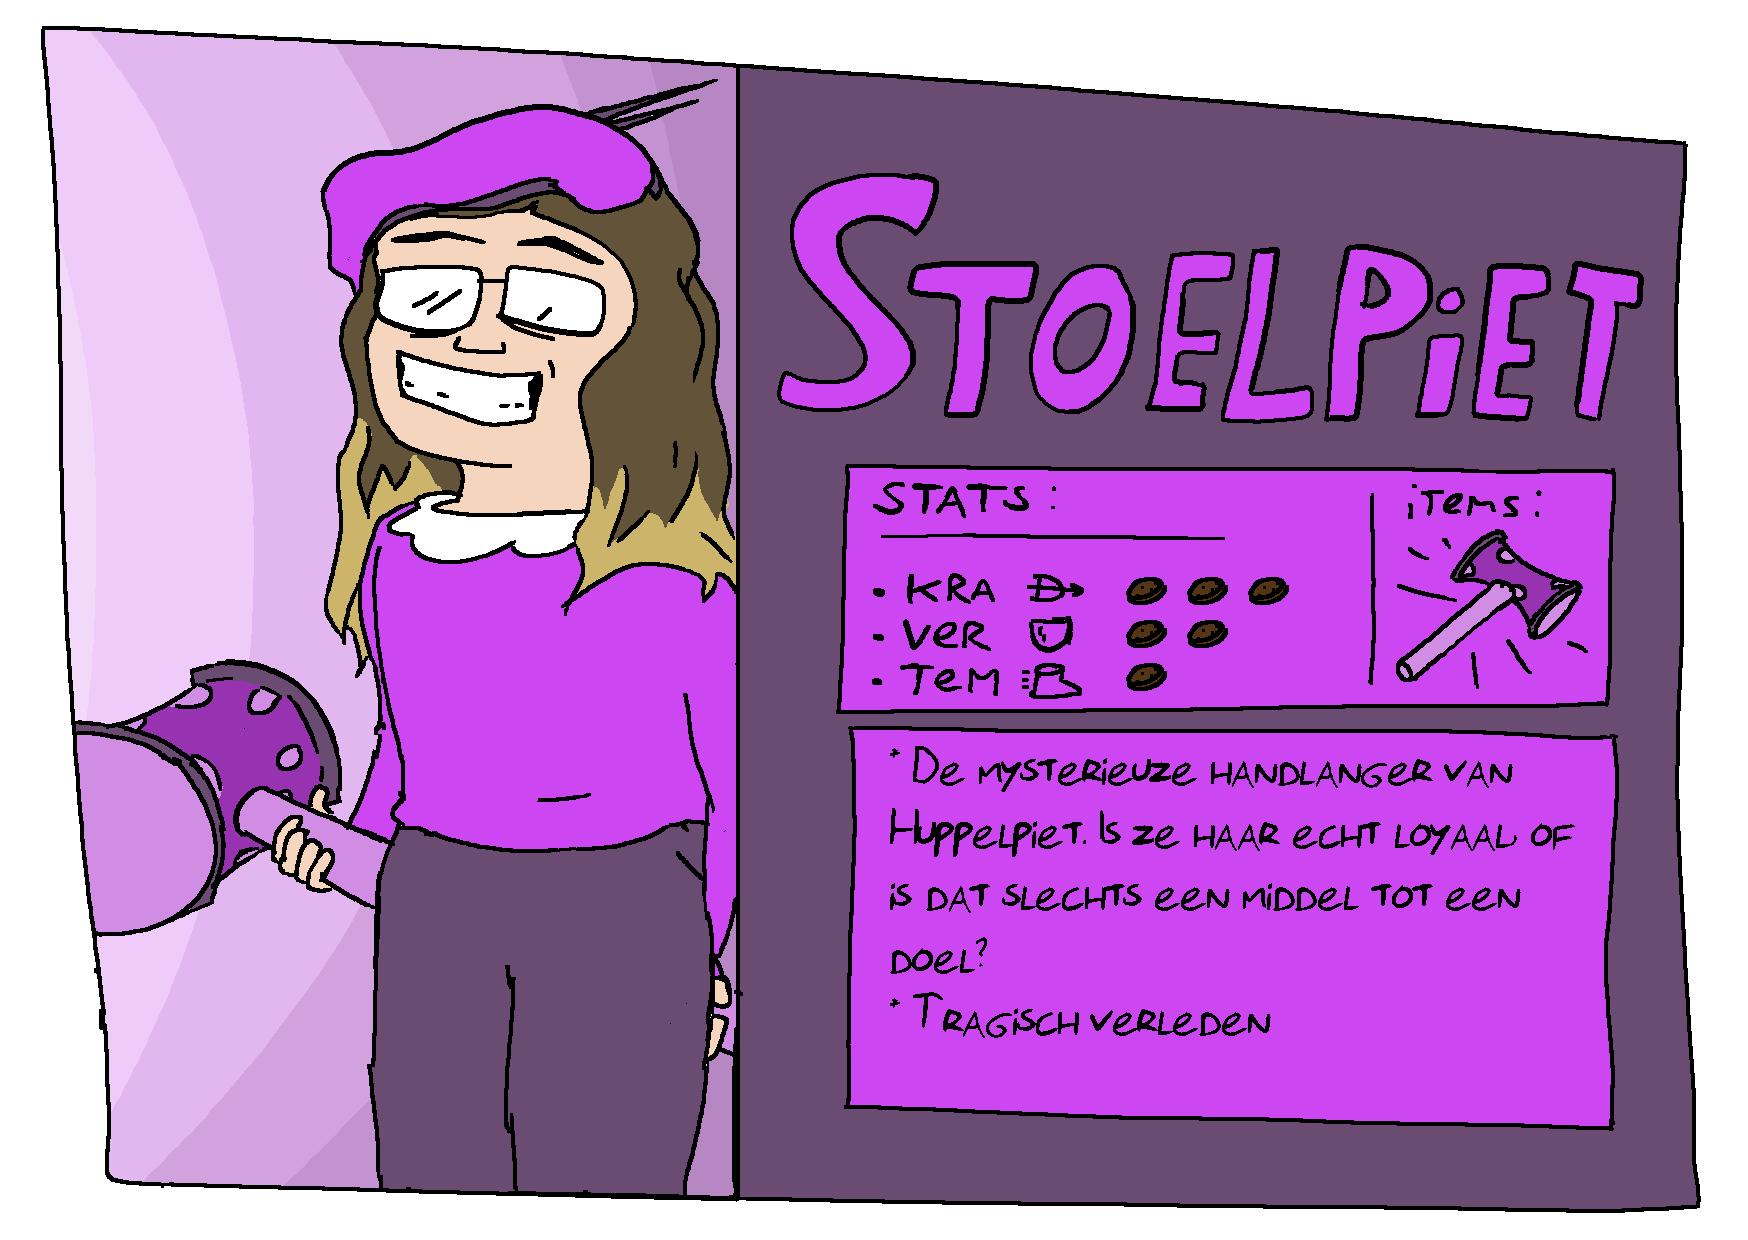 STOELPiET
STATS:
iTems:
• KRA
• VeR
• TeM
* De mysterieuze handlanger van
Huppelpiet. Is ze haar echt loyaal of
is dat slechts een middel tot een
doel?
* Tragisch verleden